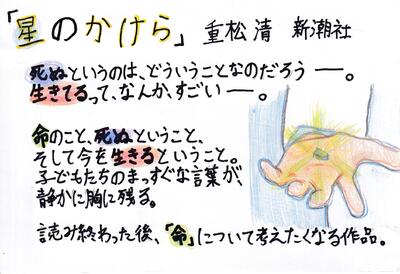 「星のかけら」 重松清 新潮社
死ぬというのは、どういうことなのだろう―。
生きてるって、なんか、すごい―。
命のこと、死ぬということ、
そして今を生きるということ。
子どもたちのまっすぐな言葉が、
静かに胸に残る。
読み終わった後、「命」について考えたくなる作品。